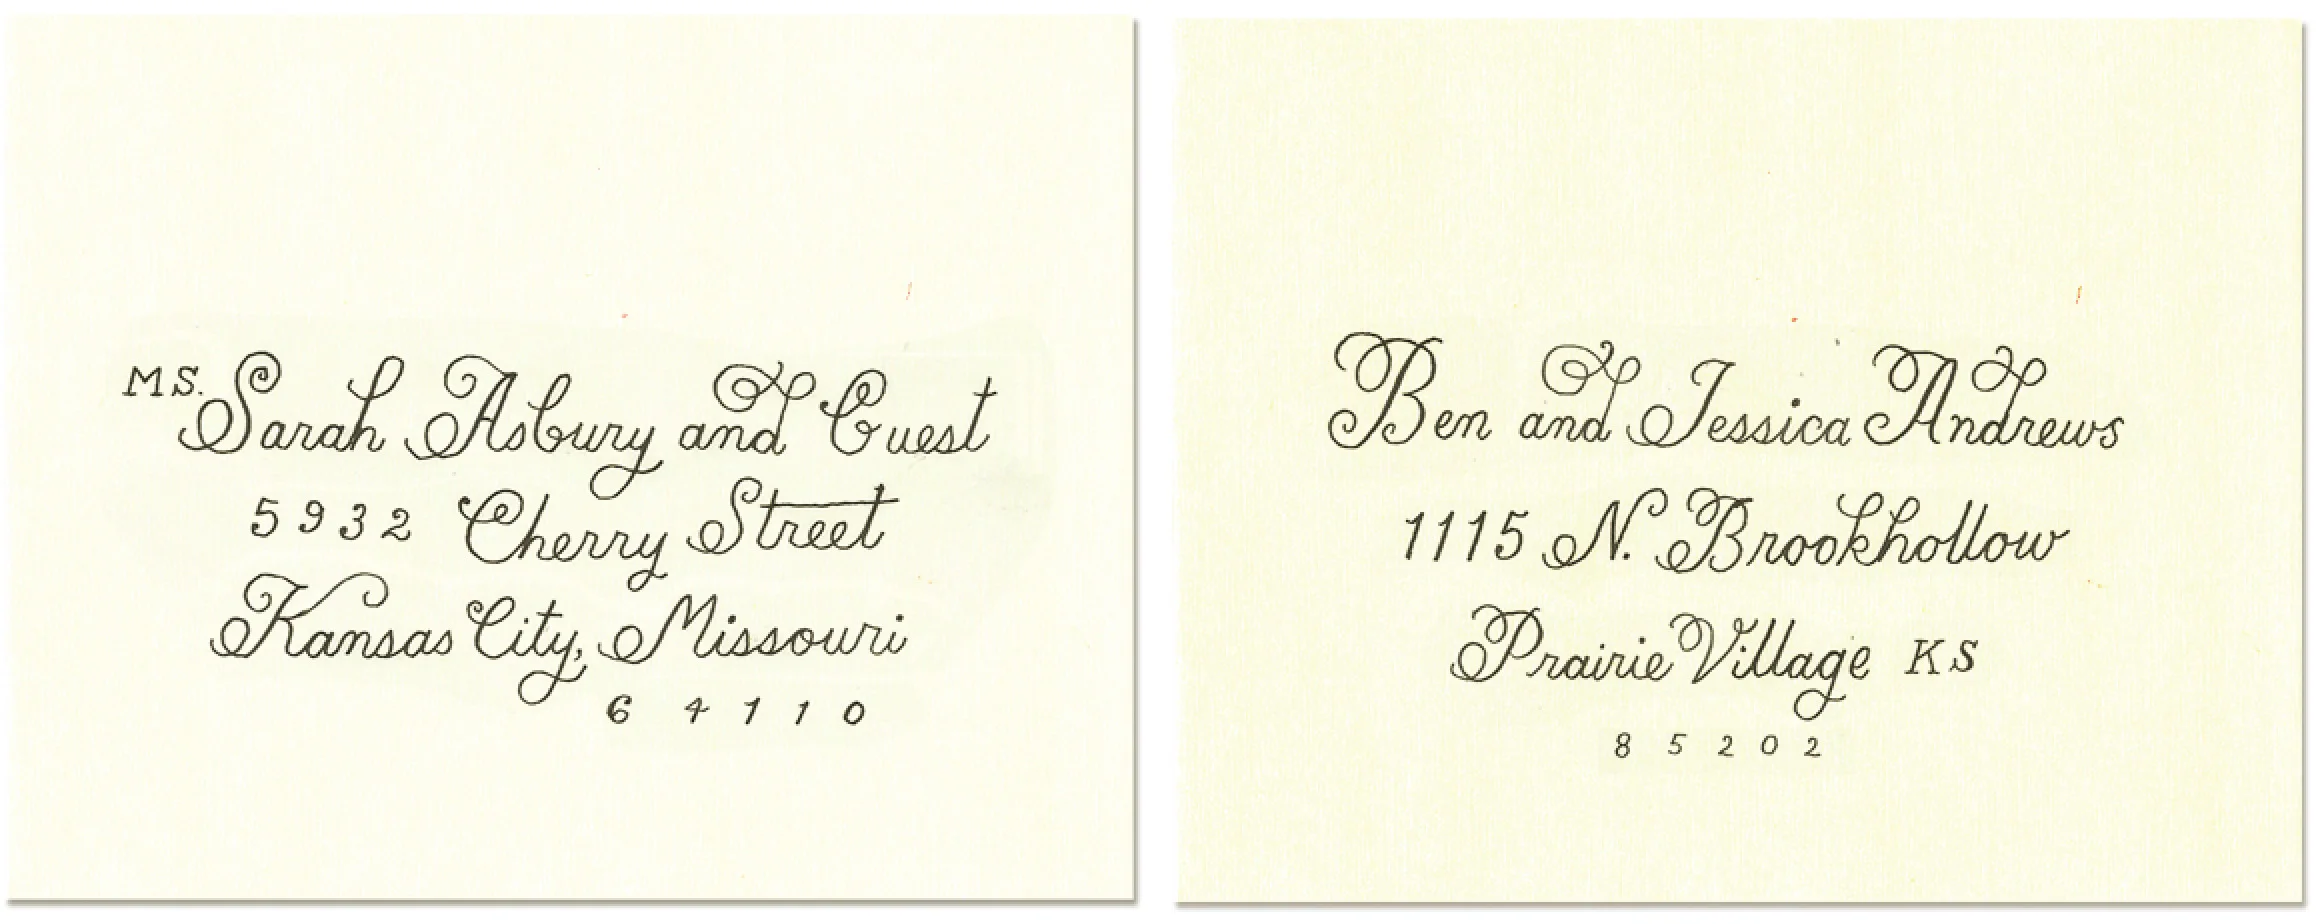 MS. Sarah Asbury and Guest
5932 Cherry Street
Kansas City, Missouri
64110
Ben and Jessica Andrews
1115 N. Brookhollow
Prairie Village KS
85202